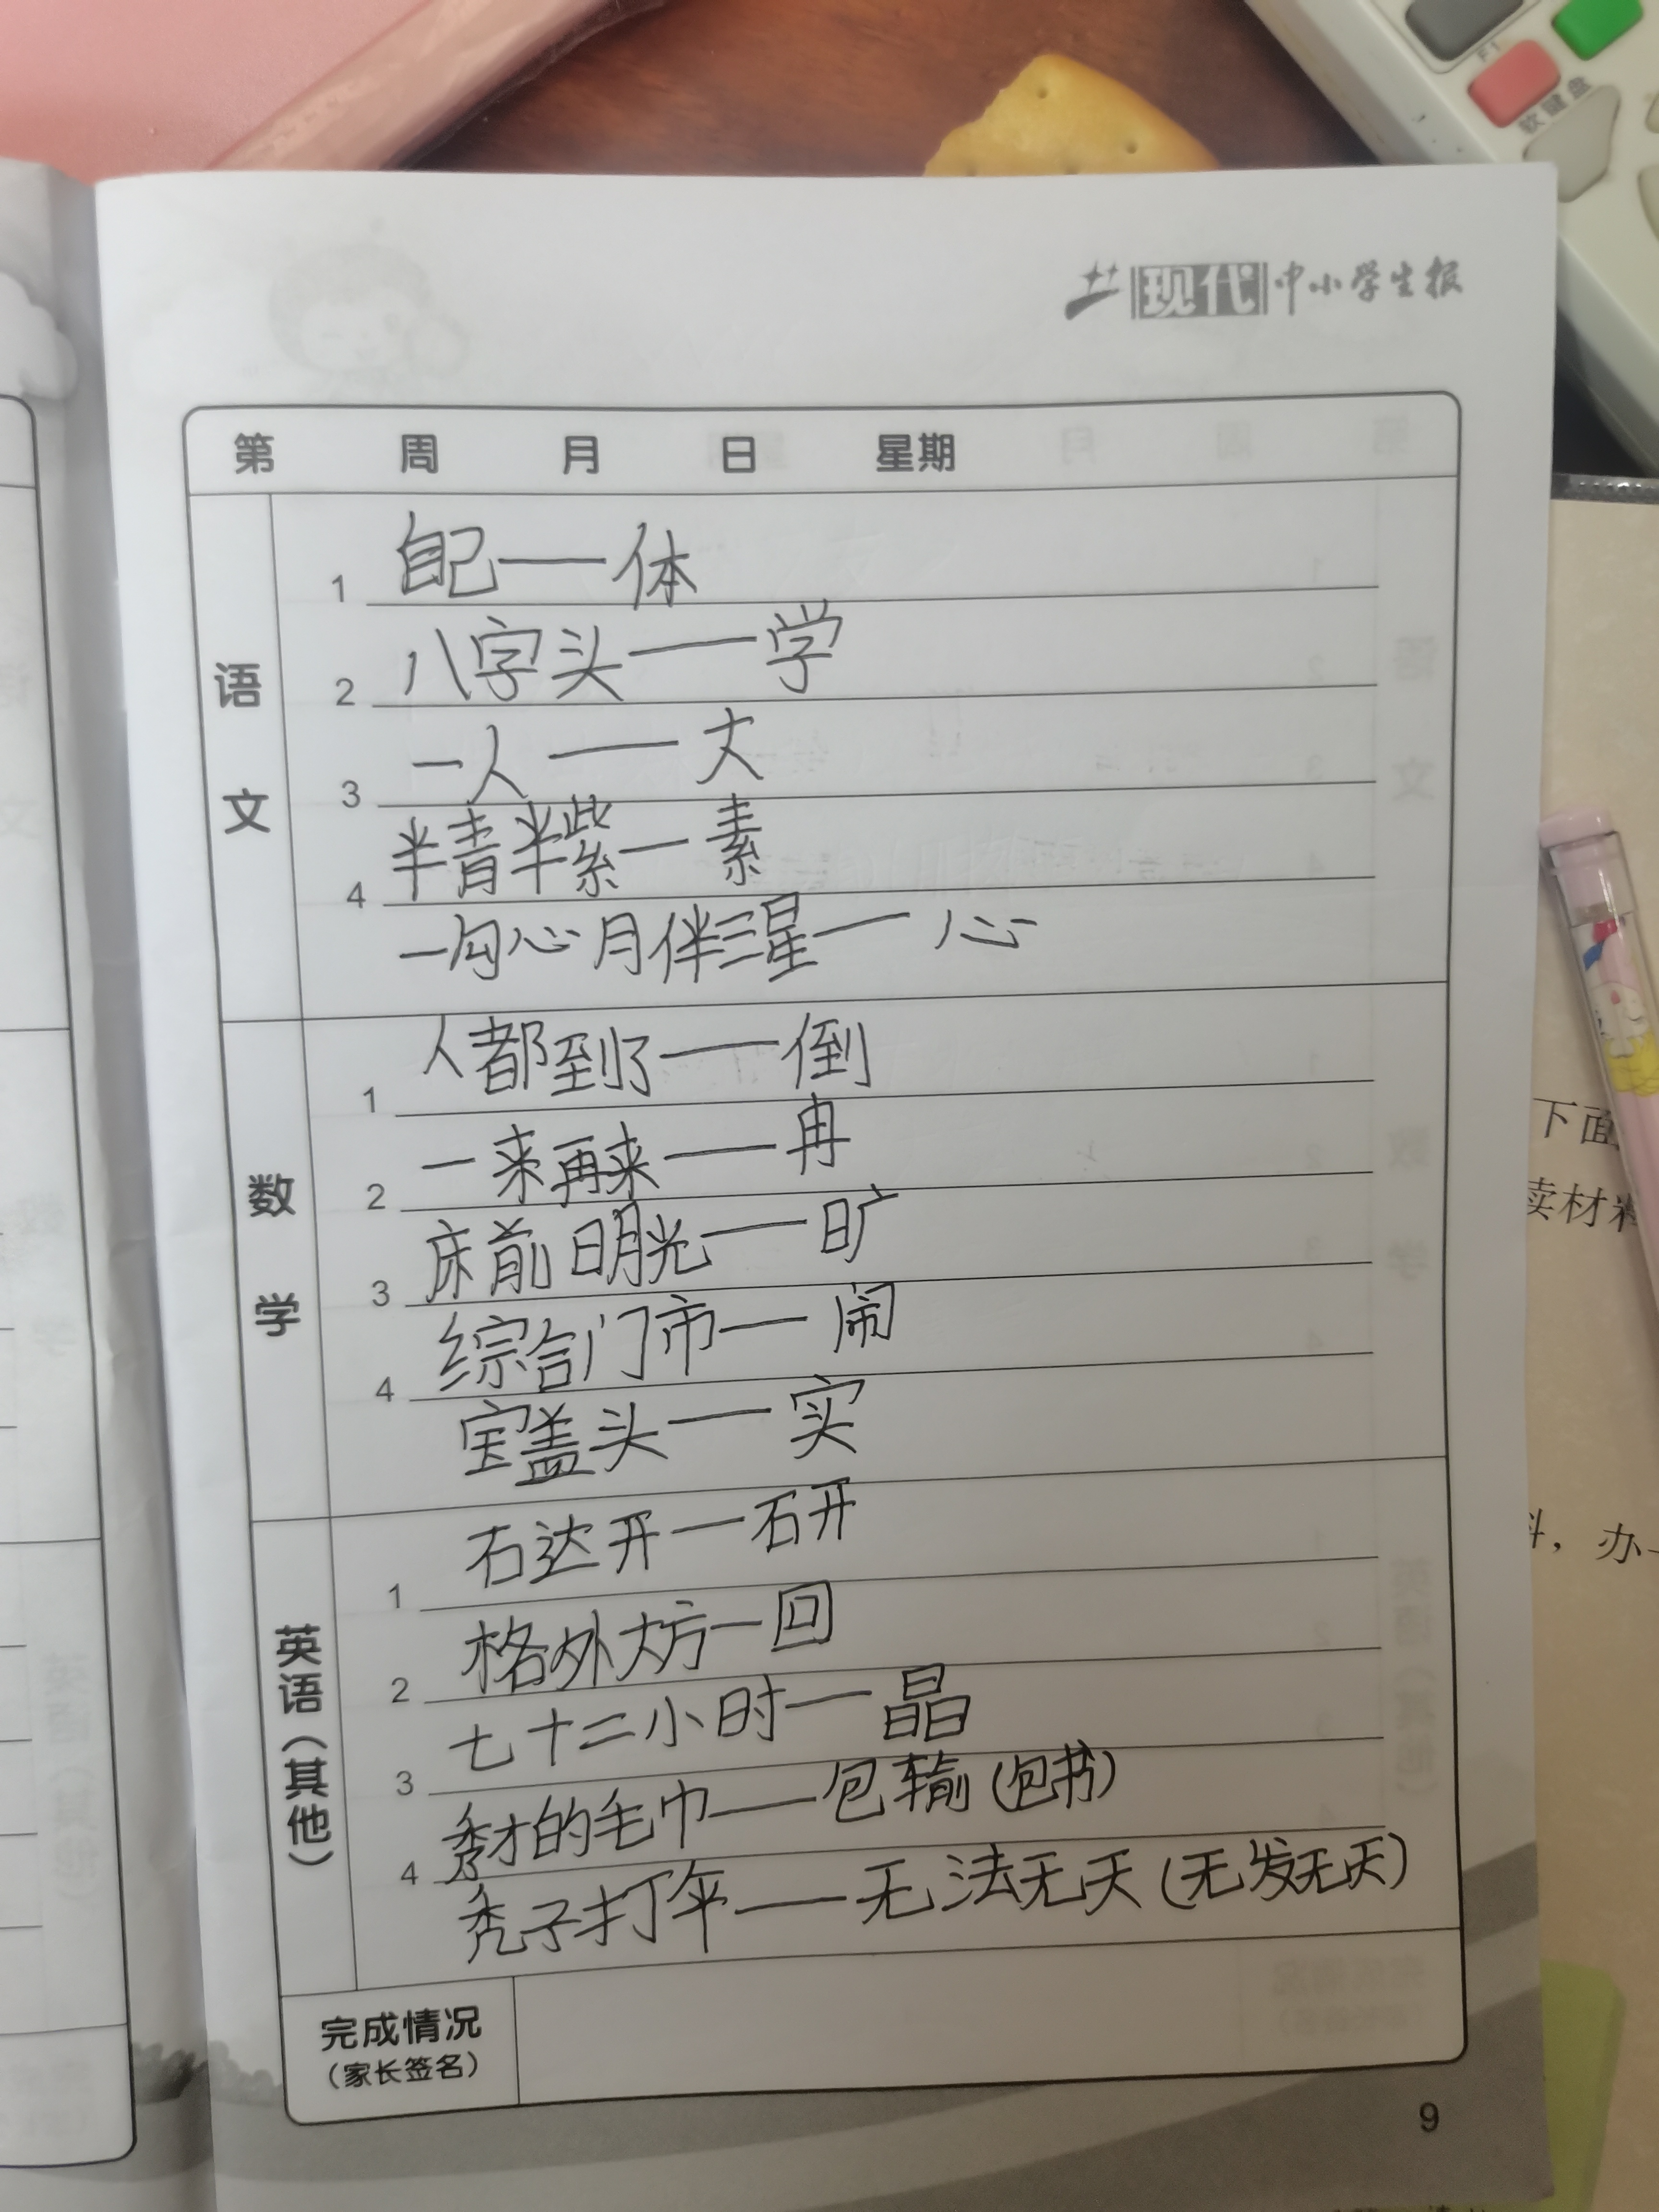 F1
软键盘
现代中小学生报
第 周 月 日 星期
语文
1 自己——体
2 八字头——学
3 一人——大
4 半青半紫—素
一勾心月伴三星—心
数学
1 人都到了——倒
2 一来再来——冉
3 床前明月光——旷
4 综合门市—闹
宝盖头——实
英语(其他)
1 石达开—研
2 格外大方—回
3 七十二小时—晶
4 秀才的毛巾——包输(包书)
秃子打伞——无法无天(无发无天)
完成情况
(家长签名)
9
下面
读材料
料，办一